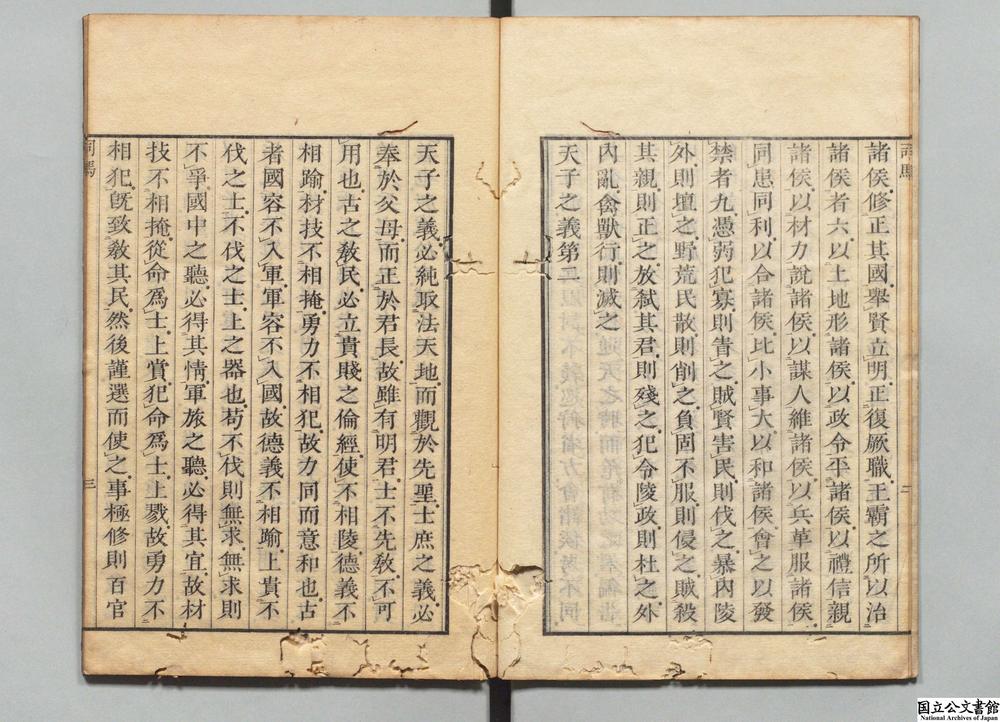 諸侯修正其國擧賢立明正復厥職王霸之所以治
諸侯者六以土地形諸侯以政令平諸侯以禮信親
諸侯以材力說諸侯以謀人維諸侯以兵革服諸侯
同患同利以合諸侯比小事大以和諸侯會之以發
禁者九憑弱犯寡則眚之賊賢害民則伐之暴內陵
外則壇之野荒民散則削之負固不服則侵之賊殺
其親則正之放弑其君則殘之犯令陵政則杜之外
內亂禽獸行則滅之
天子之義第二
天子之義必純取法天地而觀於先聖士庶之義必
奉於父母而正於君長故雖有明君士不先敎不可
用也古之敎民必立貴賤之倫經使不相陵德義不
相踰材技不相掩勇力不相犯故力同而意和也古
者國容不入軍軍容不入國故德義不相踰上貴不
伐之士不伐之士上之器也苟不伐則無求無求則
不爭國中之聽必得其情軍旅之聽必得其宜故材
技不相掩從命爲士上賞犯命爲士上戮故勇力不
相犯旣致敎其民然後謹選而使之事極修則百官
司馬
二
司馬
三
国立公文書館
National Archives of Japan